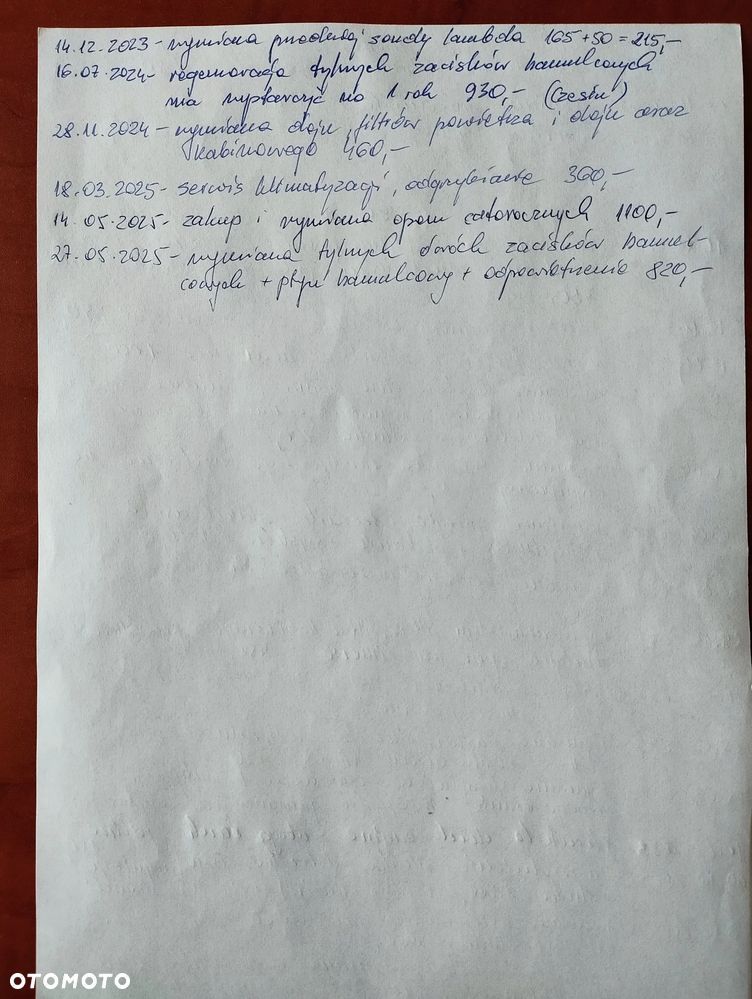 14.12.2023 - wymiana przedniej sondy lambda 165 + 50 = 215,-
16.07.2024 - regeneracja tylnych zacisków hamulcowych
ma wystarczyć na 1 rok 930,- (Czesiu)
28.11.2024 - wymiana oleju, filtrów powietrza i oleju oraz
kabinowego 460,-
18.03.2025 - serwis klimatyzacji, odgrzybianie 360,-
14.05.2025 - zakup i wymiana opon całorocznych 1100,-
27.05.2025 - wymiana tylnych dwóch zacisków hamul-
cowych + płyn hamulcowy + odpowietrzenie 820,-
OTOMOTO